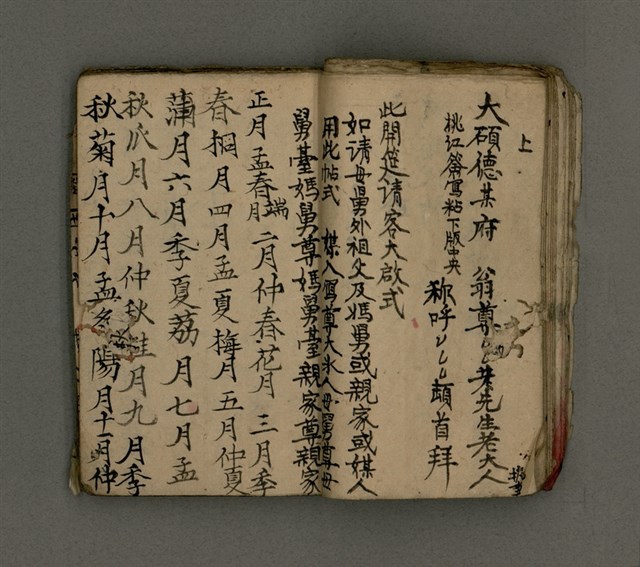 上
大碩德某府 翁尊 老先生老大人
桃江箋寫粘下版中央
称呼 頓首拜
此開筵请客大啟式
如请母舅外祖父及媽舅或親家或媒人
用此帖式 媒人寫尊大氷人母舅尊母
舅臺媽舅尊媽舅臺親家尊親家
正月孟春端月二月仲春花月三月季
春桐月四月孟夏梅月五月仲夏
蒲月六月季夏荔月七月孟
秋瓜月八月仲秋桂月九月季
秋菊月十月孟冬陽月十一月仲